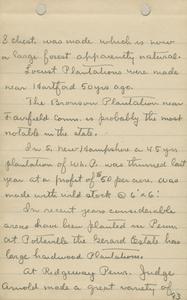 & chest. was made which is now
a large forest apparently natural.
Locust Plantations were made
near Hartford 50 yrs ago.
The Bronson Plantation near
Fairfield Conn. is probably the most
notable in the state.
In S. New Hampshire a 45 yr.
plantation of W.P. was thinned last
year at a profit of $50 per acre. was
made with wild stock @ 6'x6'.
In recent years considerable
areas have been planted in Penn.
at Pottsville the Gerard Estate has
large hardwood Plantations.
At Ridgeway Penn. Judge
Arnold made a great variety of